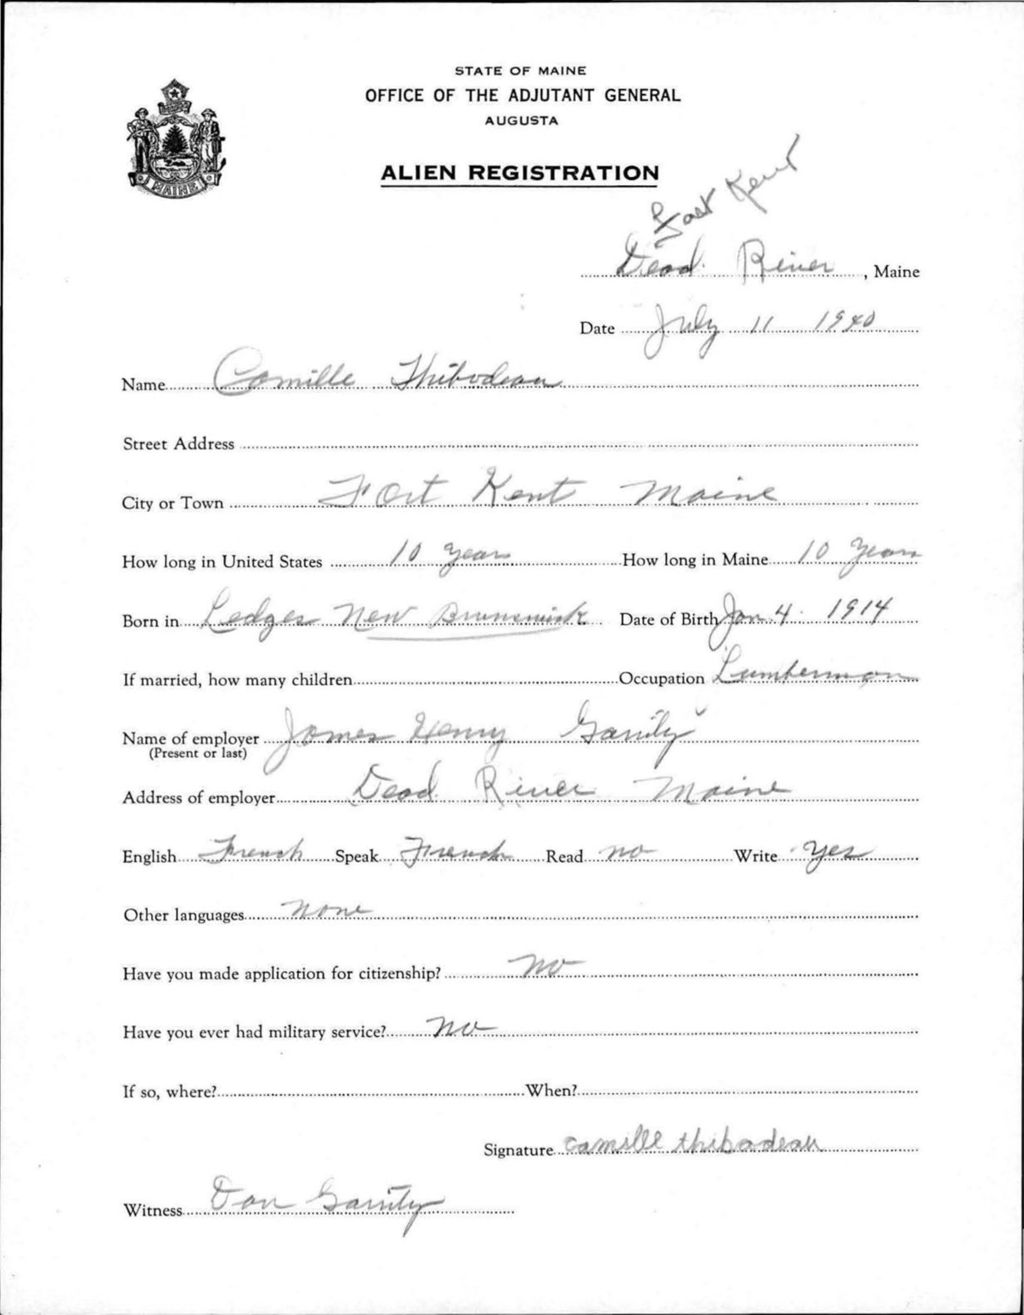 STATE OF MAINE
OFFICE OF THE ADJUTANT GENERAL
AUGUSTA
ALIEN REGISTRATION
MAINE
East Kent
Dead River, Maine
Date July 11 1940
Name Camille Thibodeau
Street Address
City or Town Fort Kent Maine
How long in United States 10 years How long in Maine 10 Years
Born in Ledges New Brunswick Date of Birth Jan 4 1914
If married, how many children Occupation Lumberman
Name of employer James Henry Garrity
(Present or last)
Address of employer Dead River Maine
English French Speak French Read no Write Yes
Other languages None
Have you made application for citizenship? No
Have you ever had military service? No
If so, where? When?
Signature camille thibodeau
Witness Dan Garrity